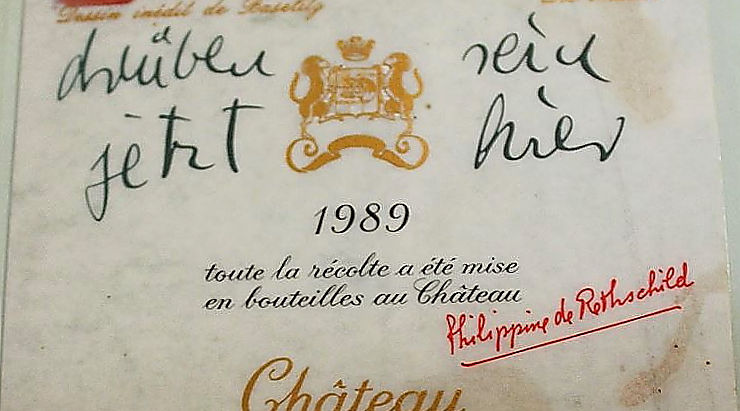 Dessin inédit de Baselitz
drüben sein
jetzt hier
1989
toute la récolte a été mise
en bouteilles au Château
Philippine de Rothschild
Château